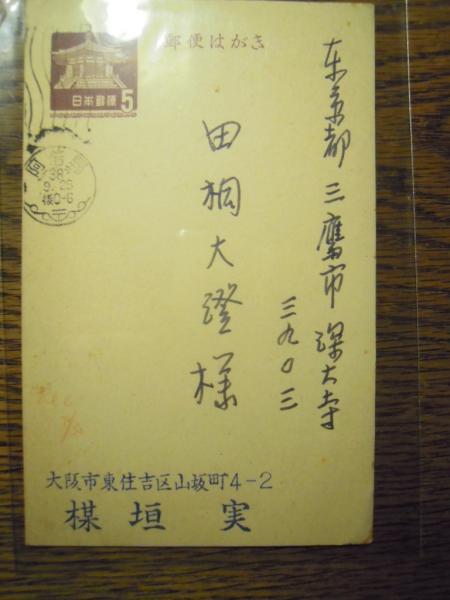 郵便はがき
日本郵便
5
38
9.23
東京都三鷹市深大寺
三九〇三
田桐大澄様
大阪市東住吉区山坂町4-2
楳垣 実